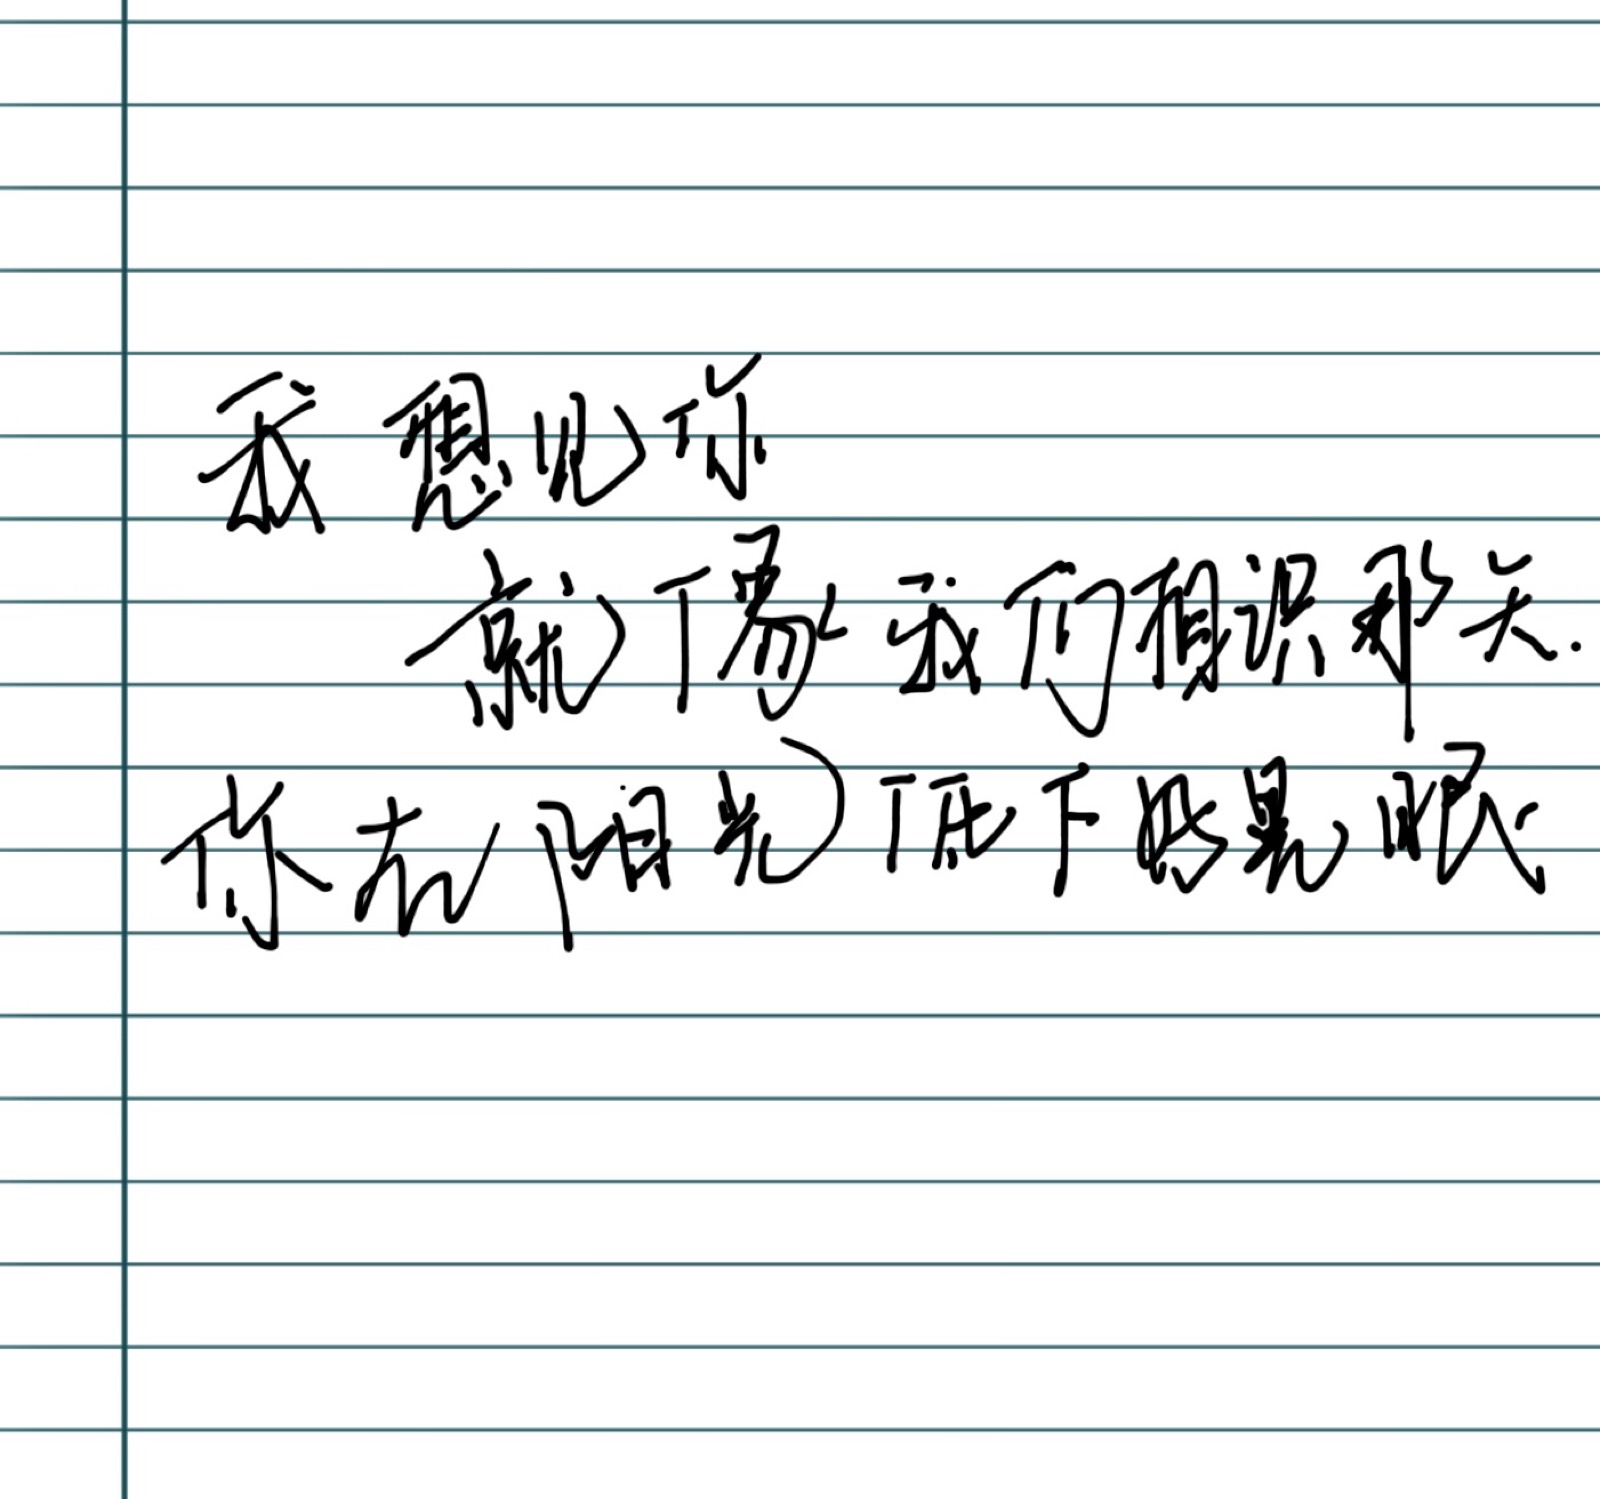 我想见你
就像我们相识那天.
你在阳光底下好晃眼